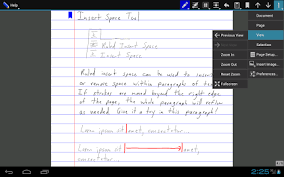 Help
Insert Space Tool
Ruled Insert Space
Insert Space
Ruled insert space can be used to insert
or remove space within paragraphs of text.
If strokes are moved beyond the right edge
of the page, the whole paragraph will reflow
as needed. Give it a try in this paragraph!
Lorem ipsum sit amet, consectetur...
Lorem ipsum sit amet,
consectetur...
Document
Page
View
Selection
Page Setup...
Insert Image...
Preferences...
Previous View
Zoom In
Zoom Out
Reset Zoom
Fullscreen
2:25